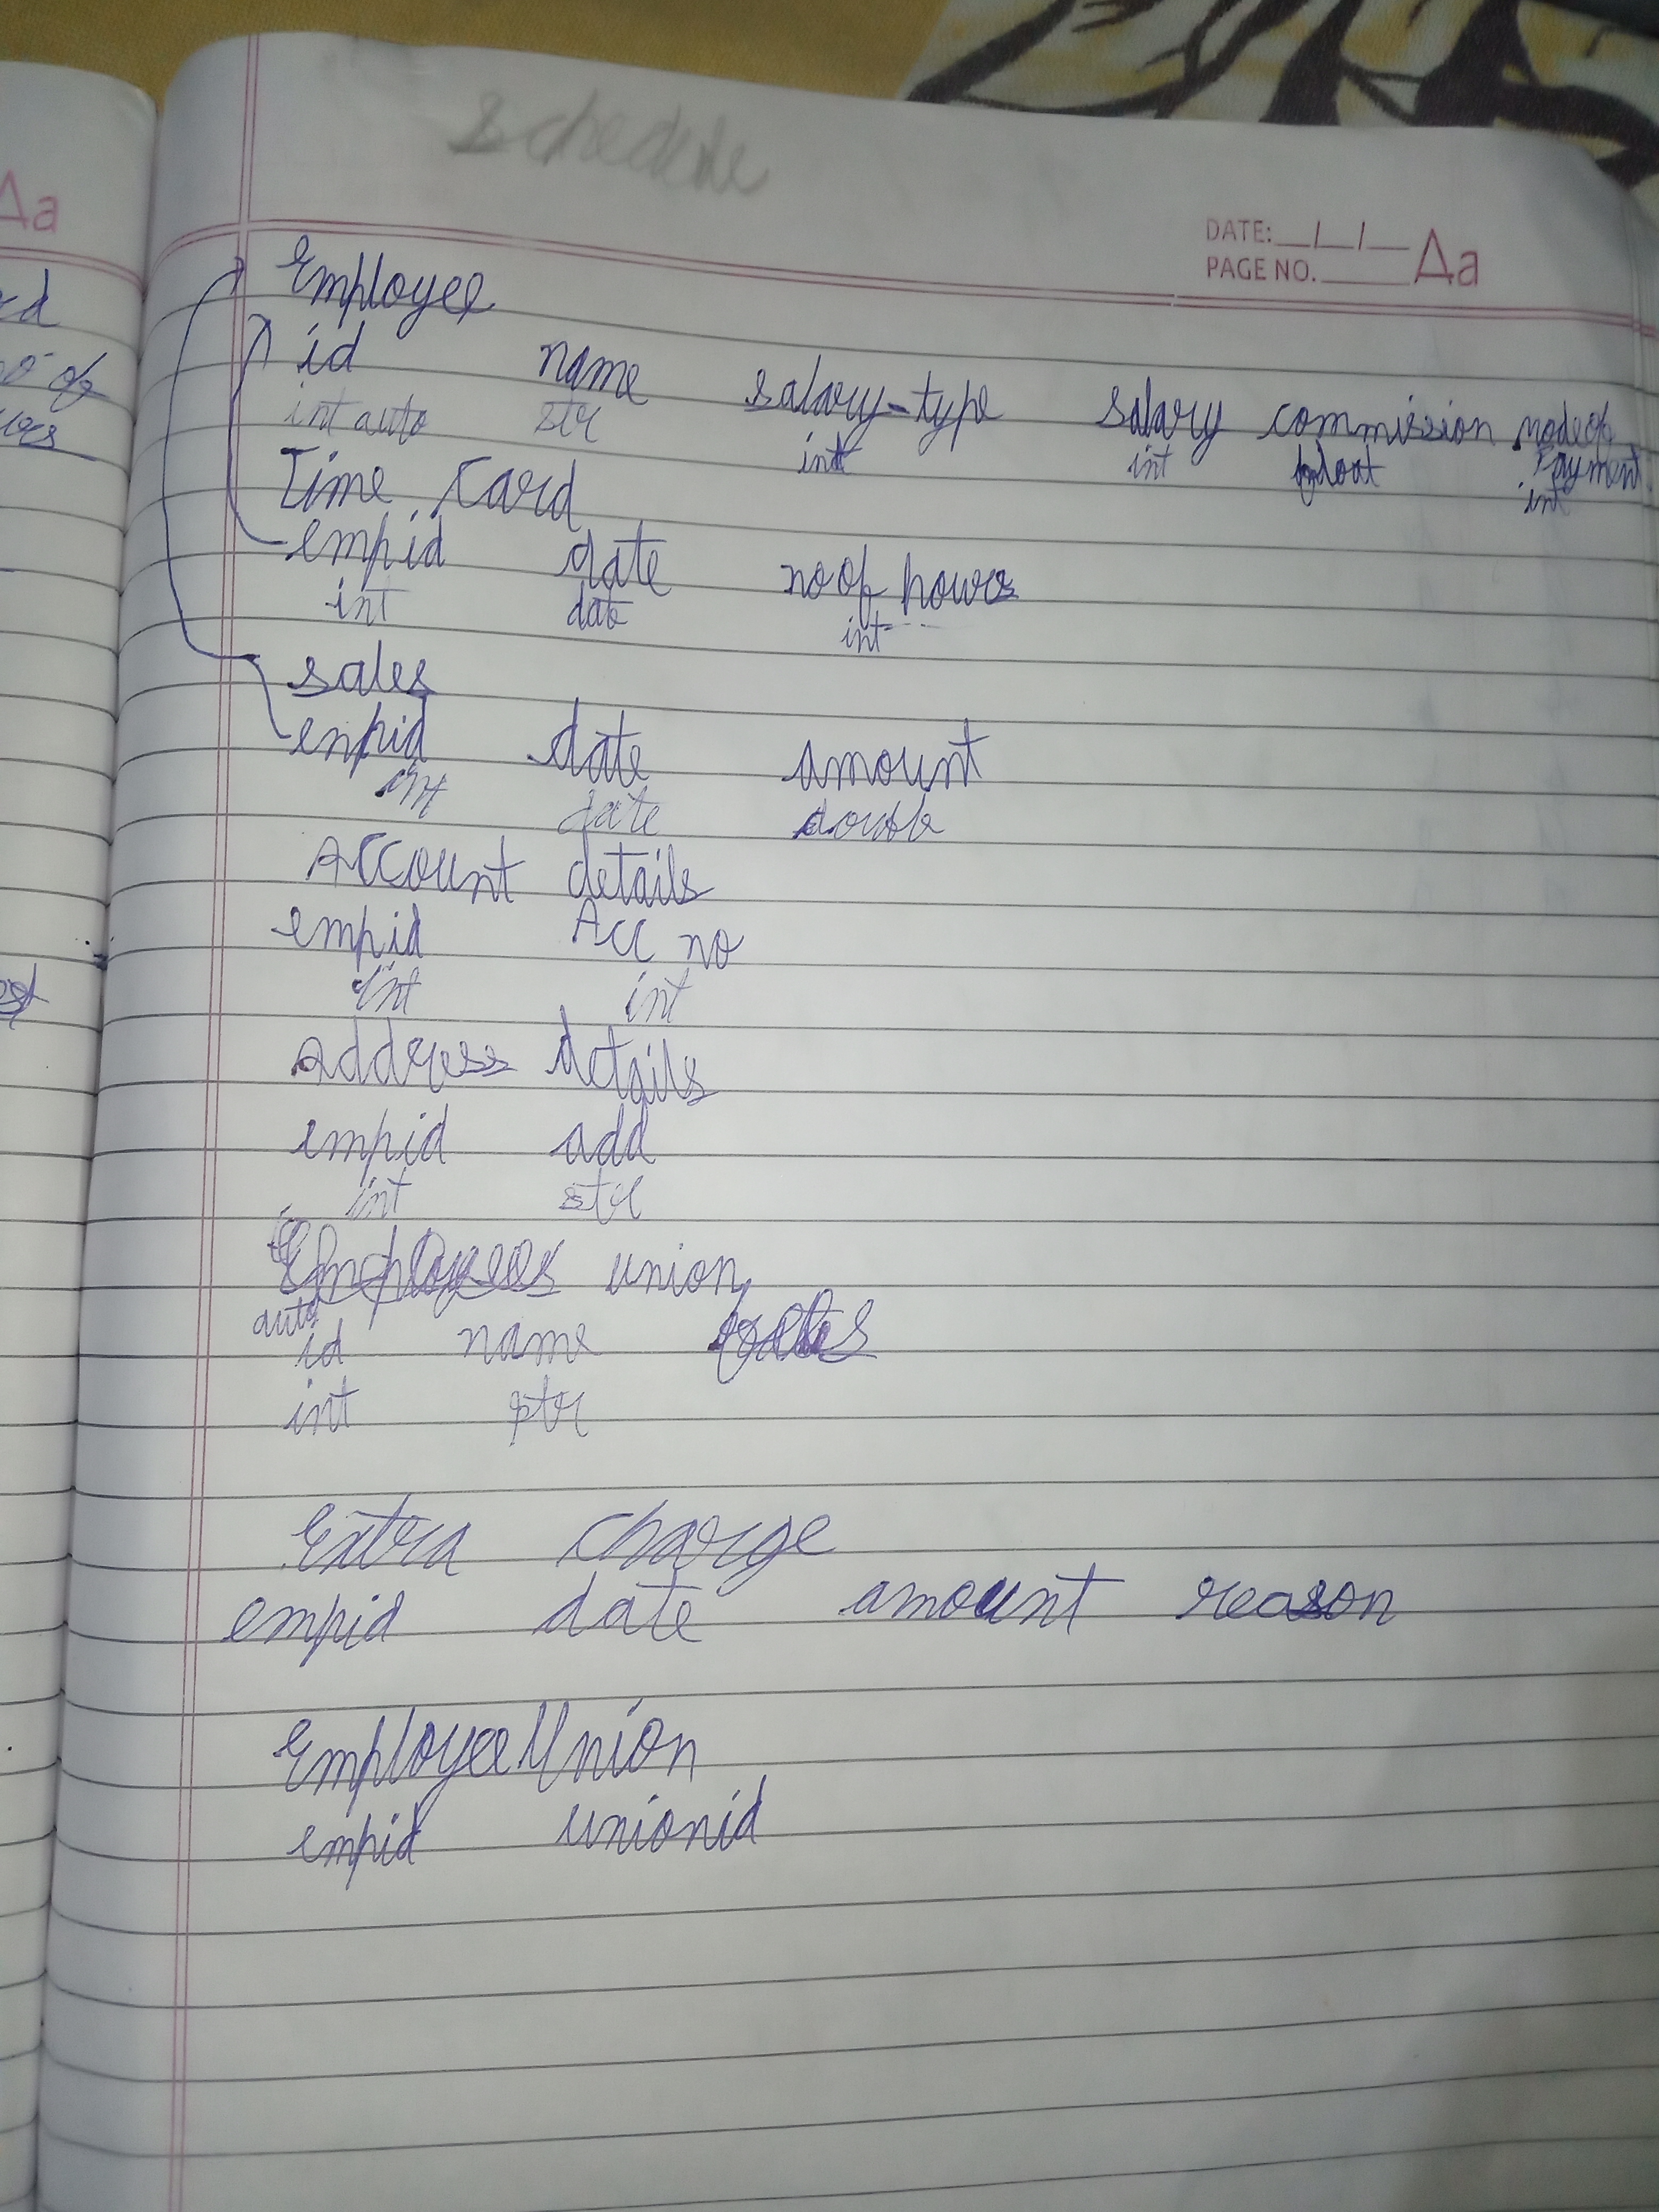 Schedule
DATE: __/__/__ Aa
PAGE NO. ____
Employee
id name salary-type salary commission modeof payment
int auto str int int float int
Time Card
empid date no of hours
int date int
sales
empid date amount
int date double
Account details
empid Acc no
int int
Address details
empid add
int str
Employees union
auto
id name
int str
Extra charge
empid date amount reason
EmployeeUnion
empid unionid
Aa